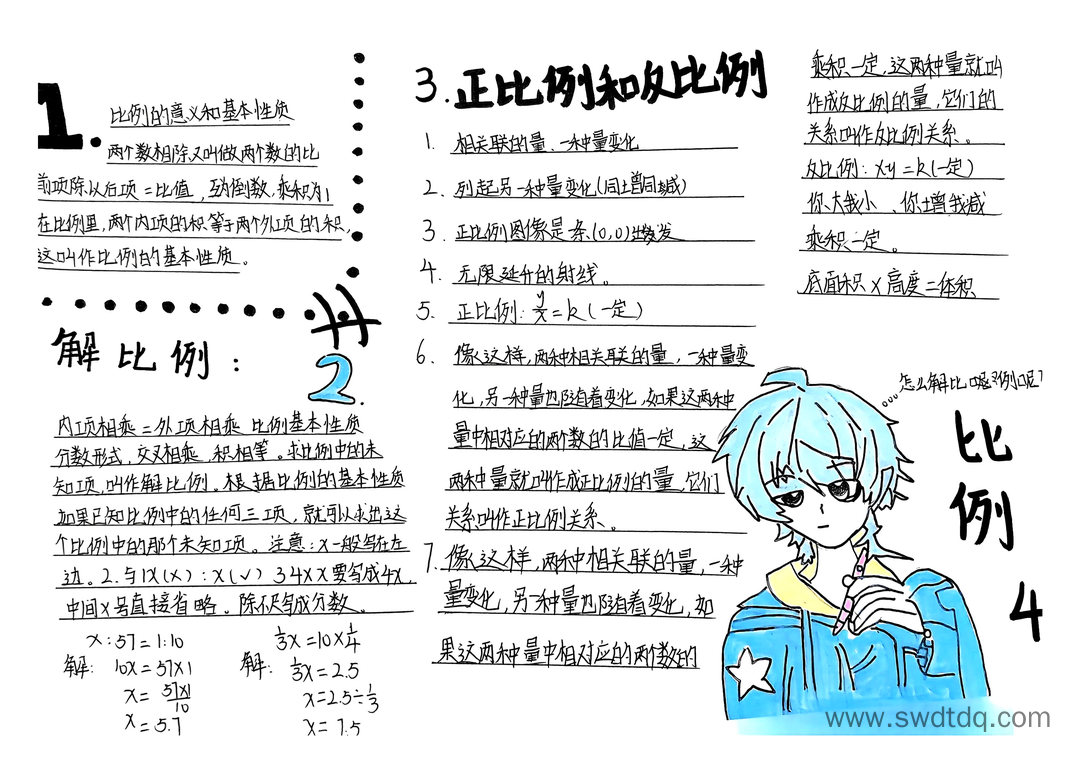 1.
比例的意义和基本性质
两个数相除又叫做两个数的比
前项除以后项=比值，互为倒数，乘积为1
在比例里，两个内项的积等于两个外项的积，
这叫作比例的基本性质。
解比例：
2.
内项相乘=外项相乘 比例基本性质
分数形式，交叉相乘 积相等。求比例中的未
知项，叫作解比例。根据比例的基本性质
如果已知比例中的任何三项，就可以求出这
个比例中的那个未知项。注意：x一般写在左
边。2.写1x(×)：x(√) 3 4×x要写成4x，
中间×号直接省略。除不尽写成分数。
x:57=1:10
解：10x=57×1
x=57×1/10
x=5.7
1/3x=10×1/4
解：1/3x=2.5
x=2.5÷1/3
x=7.5
3.正比例和反比例
1. 相关联的量、一种量变化
2. 引起另一种量变化(同增同减)
3. 正比例图像是条(0,0)出发
4. 无限延伸的射线。
5. 正比例：y/x=k(一定)
6. 像这样，两种相关联的量，一种量变
化，另一种量也随着变化，如果这两种
量中相对应的两个数的比值一定，这
两种量就叫作成正比例的量，它们
关系叫作正比例关系、
7. 像这样，两种相关联的量，一种
量变化，另一种量也随着变化，如
果这两种量中相对应的两个数的
乘积一定，这两种量就叫
作成反比例的量，它们的
关系叫作反比例关系。
反比例：xy=k(一定)
你大我小、你增我减
乘积一定。
底面积×高度=体积
怎么解比 例呢?
比例
4
www.swdtdq.com